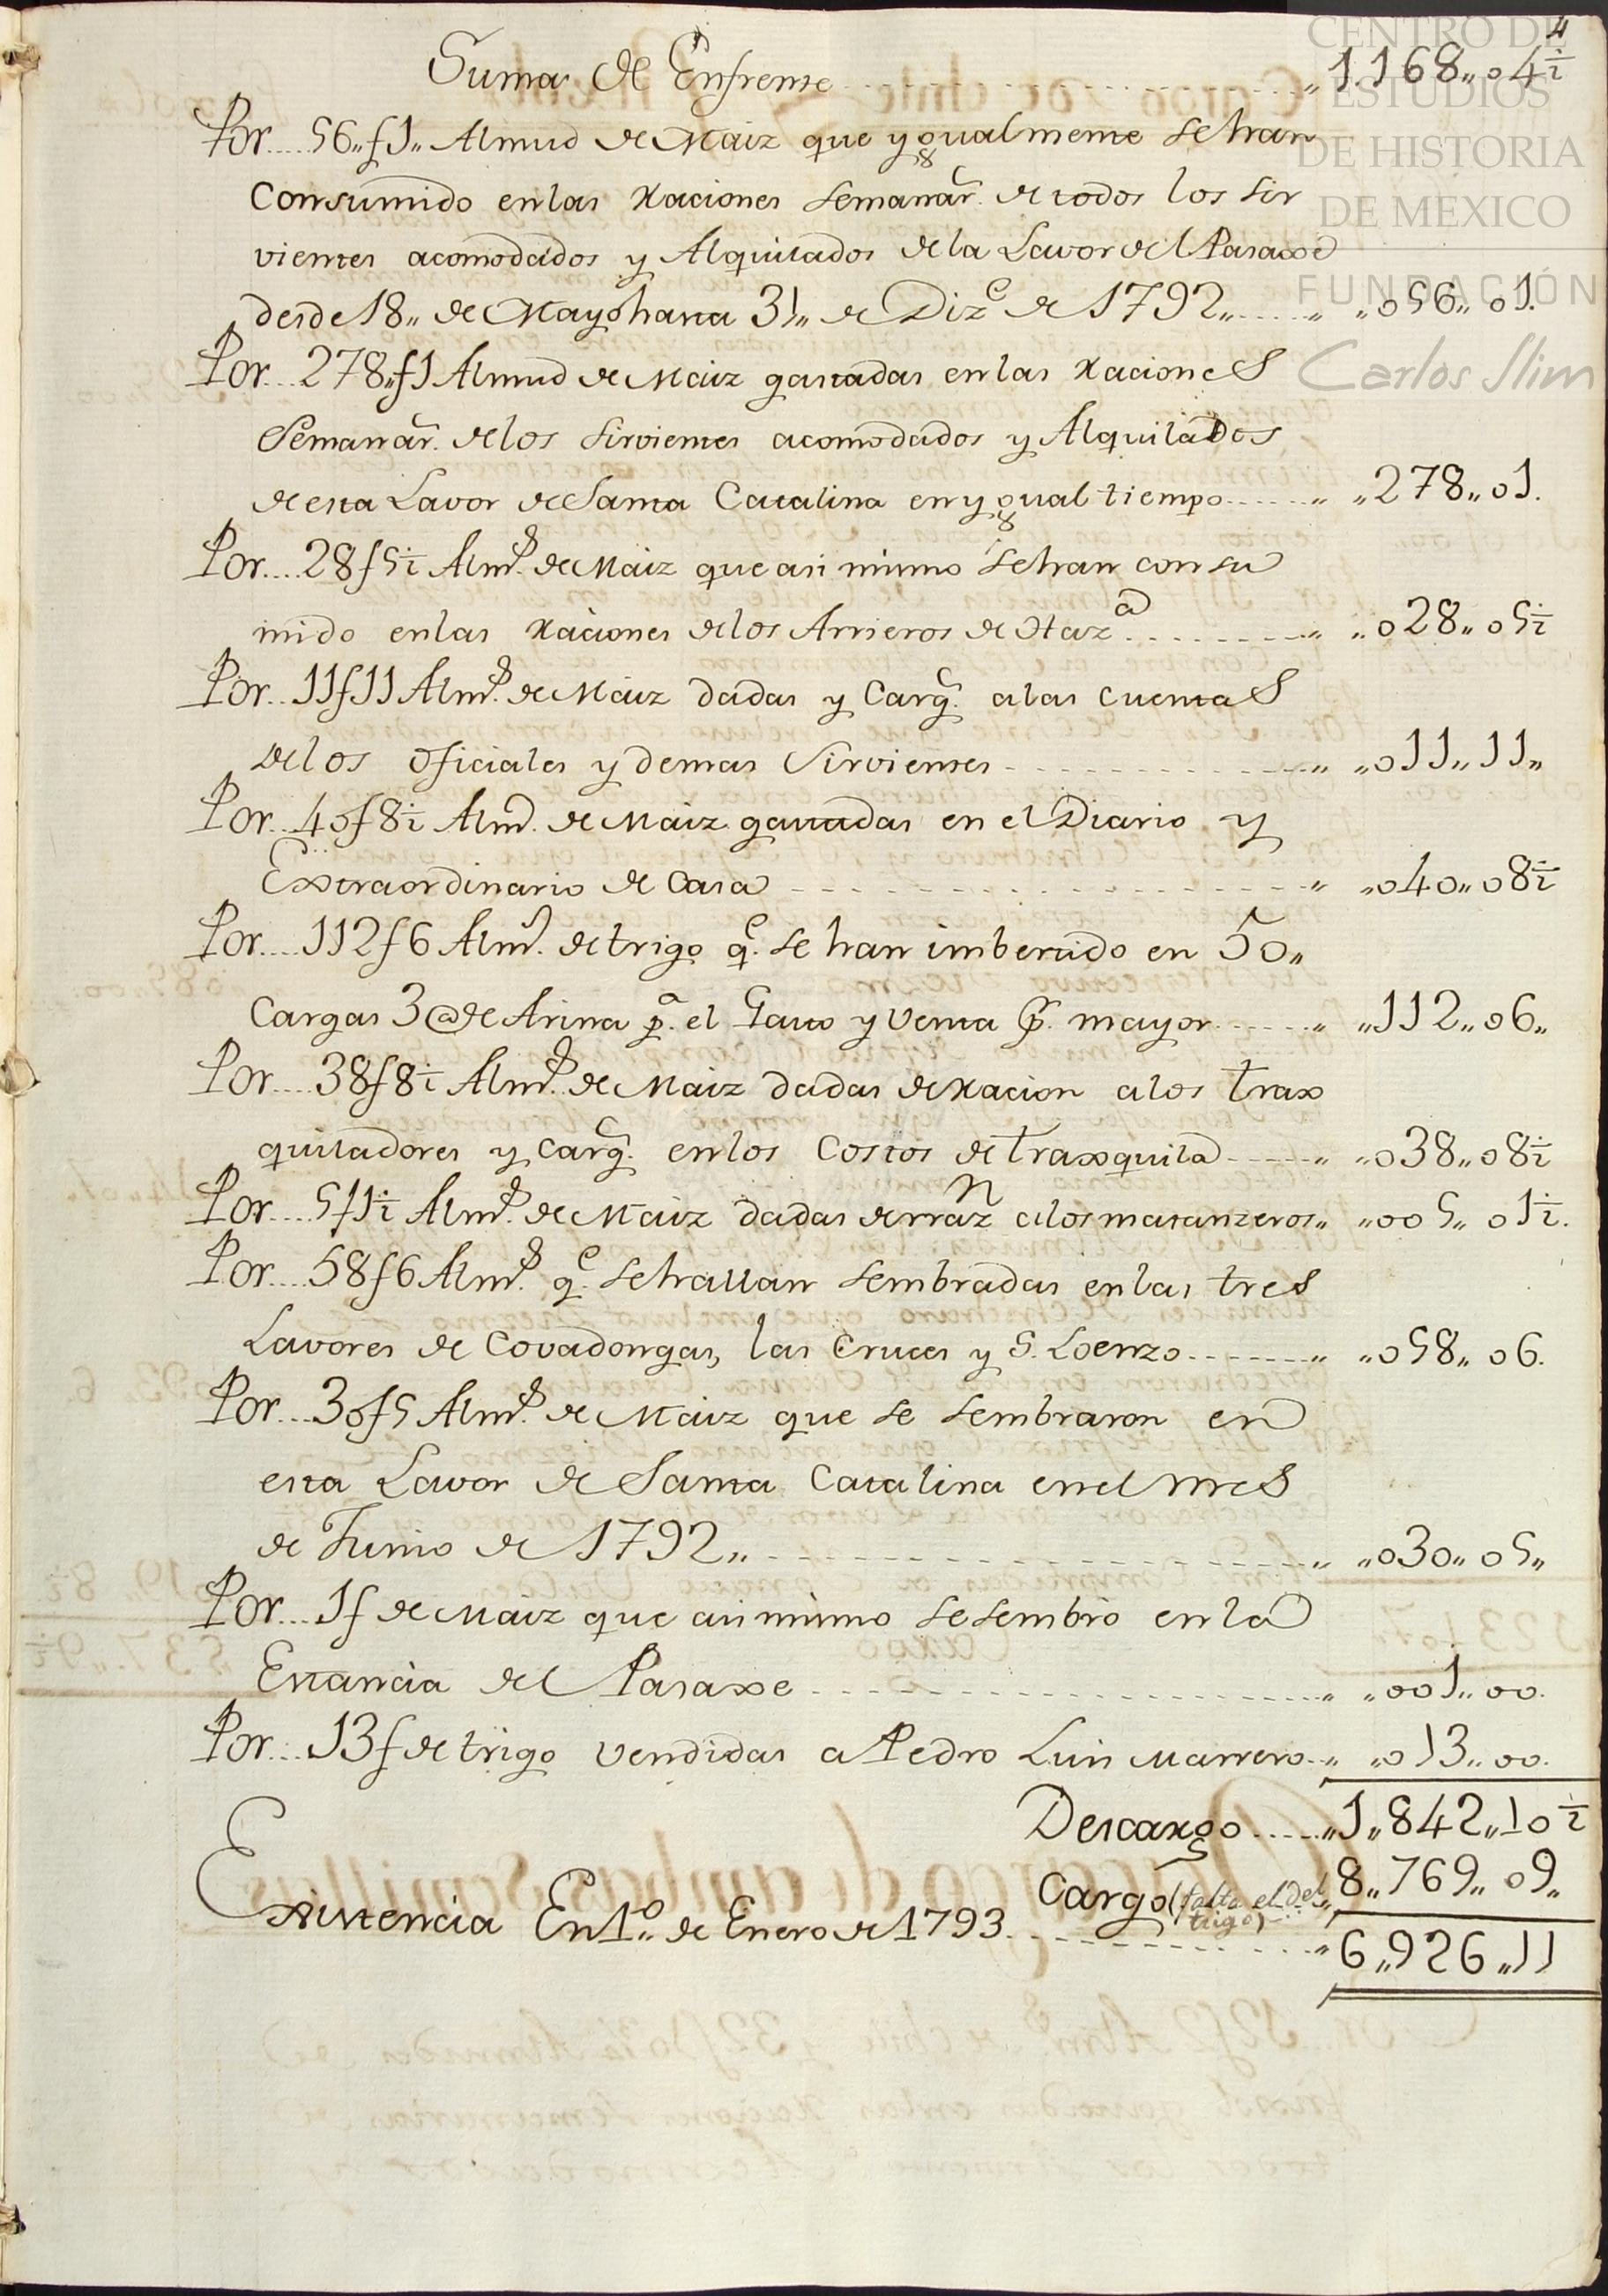 4
Suma de Enfrente ........ „ 1.168„ 04½
Por .... 56„ f 1„ Almud de Maiz que ygualmente se han
Consumido en las Raciones Seman.ˢ de todos los Sir
vientes acomodados y Alquilados de la Lavor del Pasaxe
desde 18„ de Mayo hasta 31„ de Diz.ᵉ de 1792„ ..... „ „056„ 01.
Por ... 278„ f 1 Almud de Maiz gastadas en las RacioneS
Seman.ˢ de los Sirvientes acomodados y Alquilados
de esta Lavor de Santa Catalina en ygual tiempo ..... „ „278„ 01.
Por .... 28 f 5½ Alm.ˢ de Maiz que asi mismo Se han consu
mido en las Raciones de los Arrieros de Haz.ᵃ ........ „ „028„ 05½
Por .. 11 f 11 Alm.ˢ de Maiz dadas y Carg.ˢ a las CuentaS
de los oficiales y demas Sirvientes ........ „ „011„ 11„
Por .. 40 f 8½ Alm.ˢ de Maiz gastadas en el Diario y
Extraordinario de Casa ........ „ „040„ 08½
Por .... 112 f 6 Alm.ˢ de trigo q.ᵉ se han imbertido en 50„
Cargas 3 @ de Arina p.ᵃ el Gasto y Venta p.ʳ mayor ..... „ „112„ 06„
Por .... 38 f 8½ Alm.ˢ de Maiz dadas de Racion a los trax
quiladores y Carg.ˢ en los Costos de traxquila ..... „ „038„ 08½
Por .... 5 f 1½ Alm.ˢ de Maiz dadas de rraz.ⁿ a los matanzeros„ „005„ 01½.
Por .... 58 f 6 Alm.ˢ q.ᵉ se hallan Sembradas en las treS
Lavores de Covadongas, las Cruces y S. Loenzo ....... „ „058„ 06.
Por ... 30 f 5 Alm.ˢ de Maiz que se Sembraron en
esta Lavor de Santa Catalina en el meS
de Junio de 1792„ ........ „ „030„ 05„
Por ... 1 f de Maiz que asi mismo se sembro en la
Estancia del Pasaxe ........ „ „001„ 00.
Por ... 13 f de trigo vendidas a Pedro Luis Marrero .. „ „013„ 00.
Descargo ..... „1„842„10½
Cargo (falta el del trigo) „ 8„769„ 09„
Existencia En 1.º de Enero de 1793 ........ „ 6„926„11
CENTRO DE
ESTUDIOS
DE HISTORIA
DE MEXICO
FUNDACIÓN
Carlos Slim